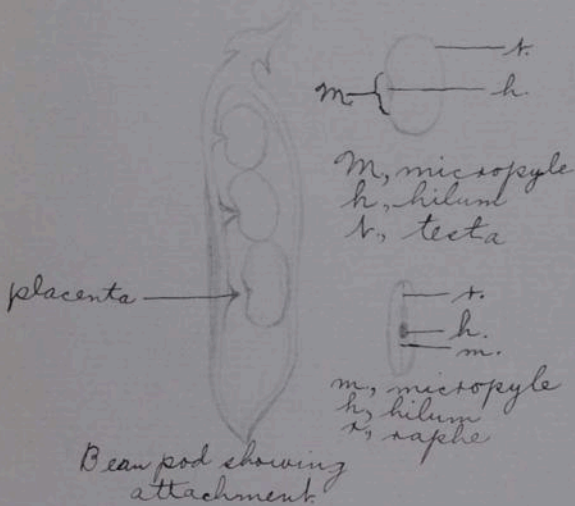 t.
M
h.
M, micropyle
h, hilum
t, testa
placenta
r.
h.
m.
m, micropyle
h, hilum
r, raphe
Bean pod showing
attachment.